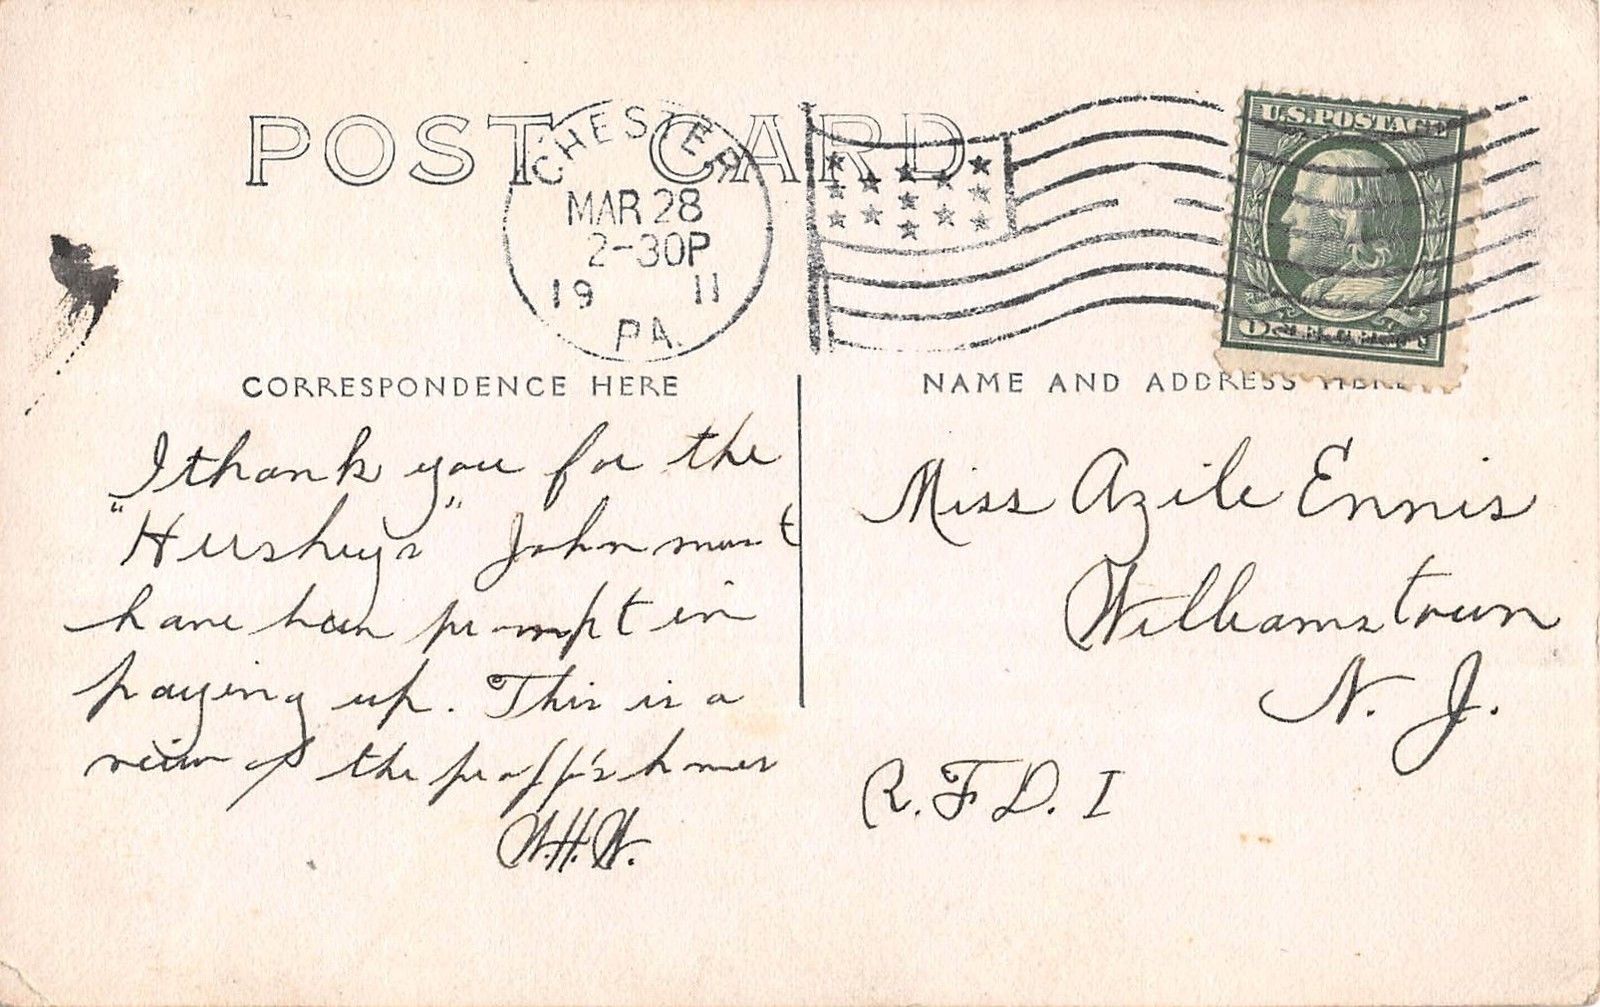 POST CARD
CHESTER
MAR 28
2-30P
19 11
PA.
U.S. POSTAGE
CORRESPONDENCE HERE
NAME AND ADDRESS HERE
I thank you for the
"Hersheys" John must
have been prompt in
paying up. This is a
view of the proff's homes
W.H.W.
Miss Azile Ennis
Williamstown
N. J.
R. F. D. 1